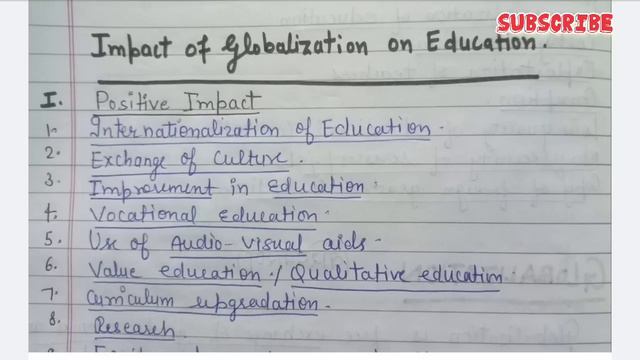 SUBSCRIBE
Impact of Globalization on Education.
I. Positive Impact
1. Internationalization of Education.
2. Exchange of Culture.
3. Improvement in education.
4. Vocational education.
5. Use of Audio-Visual aids.
6. Value education / Qualitative education.
7. Curriculum upgradation.
8. Research.